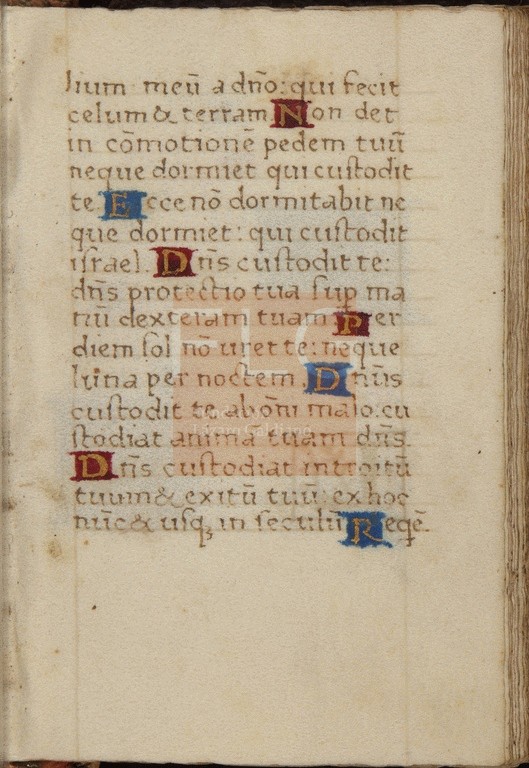 lium meū a dño: qui fecit
celum & terram. Non det
in cōmotionē pedem tuū
neque dormiet qui custodit
te. Ecce nō dormitabit ne
que dormiet: qui custodit
israel. Dñs custodit te:
dñs protectio tua sup ma
nū dexteram tuam. Per
diem sol nō uret te: neque
luna per noctem. Dñus
custodit te ab oñi malo: cu
stodiat anima tuam dñs.
Dñs custodiat introitū
tuum & exitū tuū: ex hoc
nūc & usq; in seculū Reqē.
FLG
Lázaro Galdiano